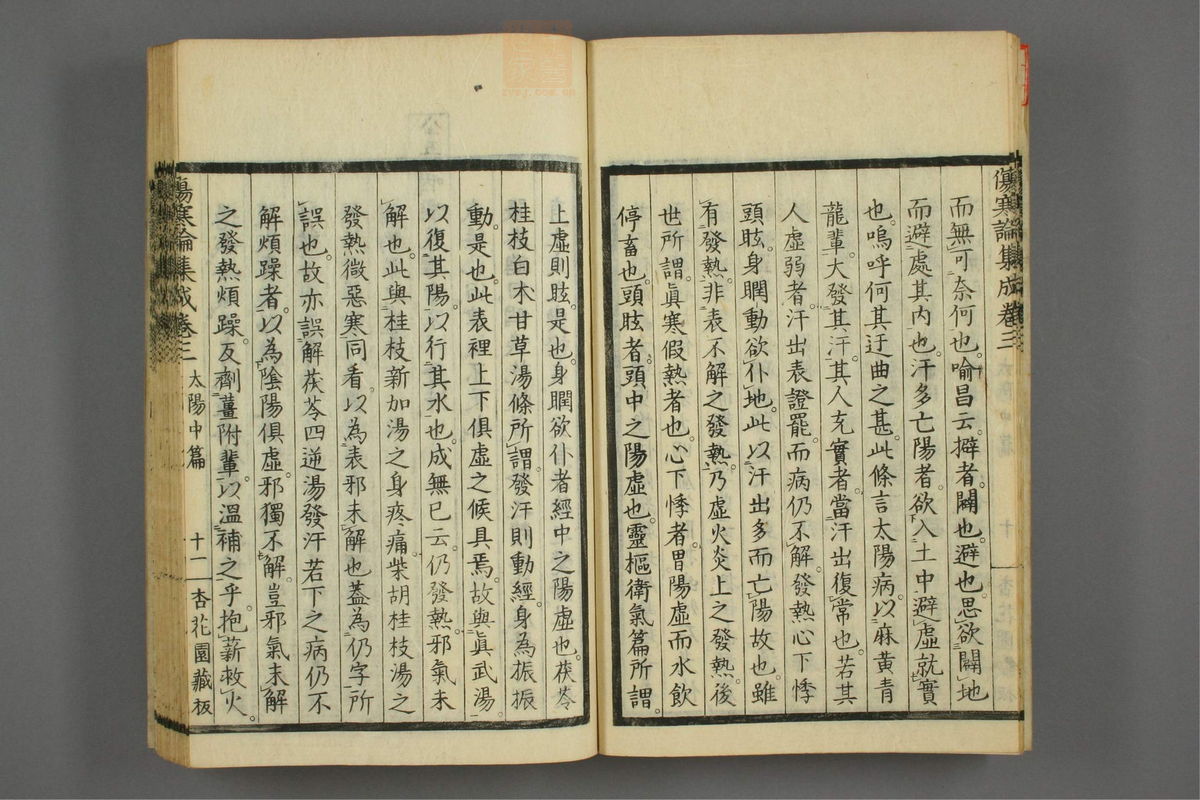 傷寒論集成卷三
而無可奈何也。喻昌云。擗者。闢也。避也。思欲闢地
而避處其內也。汗多亡陽者。欲入土中。避虛就實
也。嗚呼何其迂曲之甚。此條言太陽病。以麻黃青
龍輩。大發其汗。其人充實者。當汗出復常也。若其
人虛弱者。汗出表證罷。而病仍不解。發熱心下悸
頭眩。身瞤動。欲仆地。此以汗出多而亡陽故也。雖
有發熱。非表不解之發熱。乃虛火炎上之發熱。後
世所謂。眞寒假熱者也。心下悸者。胃陽虛而水飲
停畜也。頭眩者。頭中之陽虛也。靈樞衛氣篇所謂。
上虛則眩。是也。身瞤欲仆者。經中之陽虛也。茯苓
桂枝白朮甘草湯條所謂。發汗則動經。身為振振
動。是也。此表裡上下俱虛之候具焉。故與眞武湯。
以復其陽。以行其水也。成無已云。仍發熱。邪氣未
解也。此與桂枝新加湯之身疼痛。柴胡桂枝湯之
發熱微惡寒。同看。以為表邪未解也。蓋為仍字所
誤也。故亦誤解茯苓四逆湯發汗若下之病仍不
解煩躁者。以為陰陽俱虛。邪獨不解。豈邪氣未解
之發熱煩躁。反劑薑附輩。以溫補之乎。抱薪救火。
傷寒論集成卷三 太陽中篇 十一 杏花園藏板